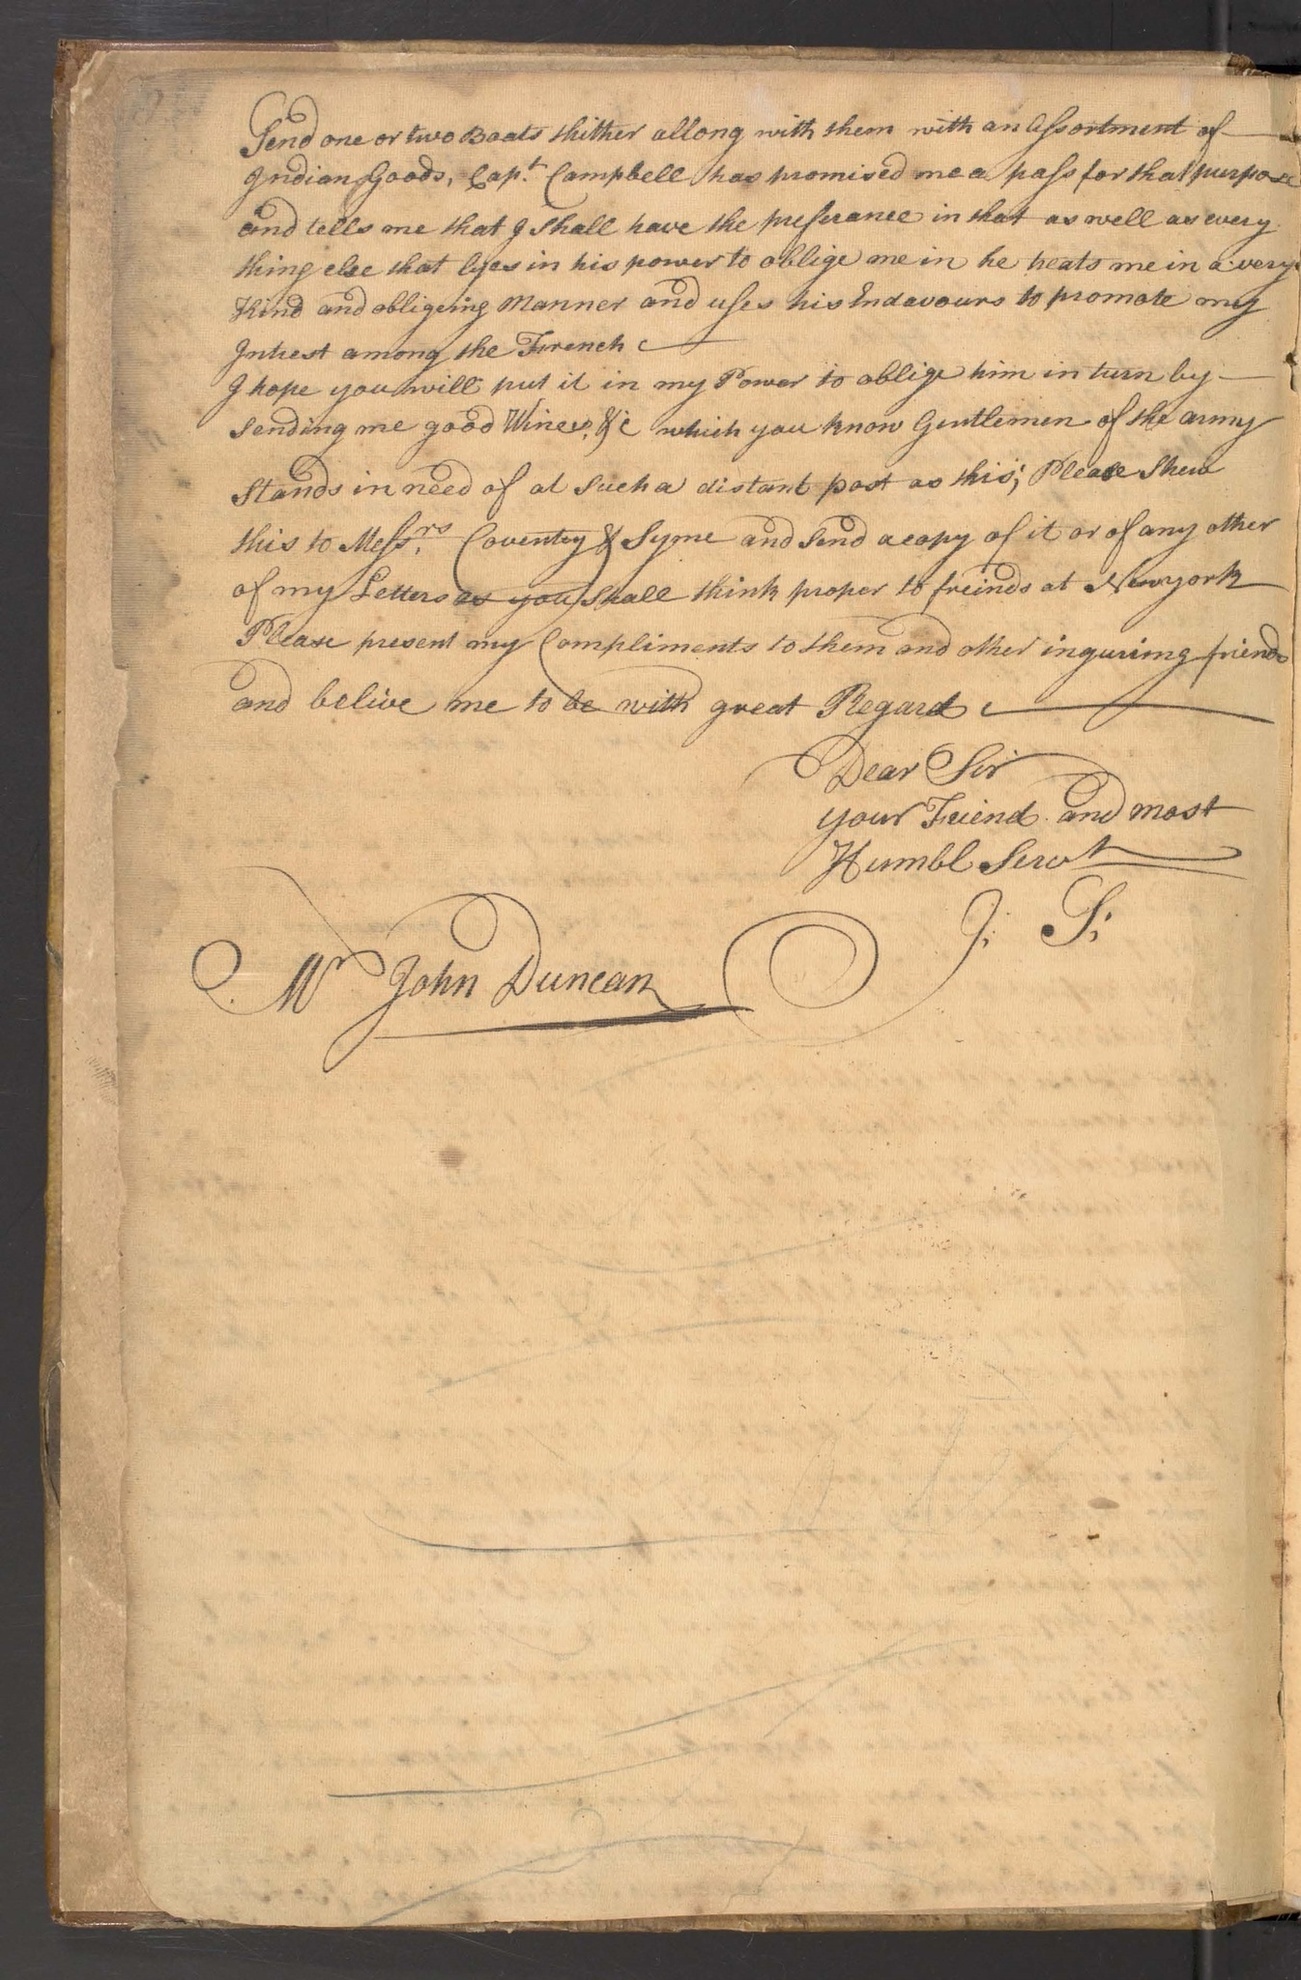 Send one or two Boats thither allong with them with an Assortment of
Indian Goods, Capt. Campbell has promised me a pass for that purpose
and tells me that I shall have the preferance in that as well as every
thing else that lyes in his power to oblige me in he treats me in a very
Kind and obligeing Manner and uses his Indavours to promote my
Intrest among the French
I hope you will put it in my Power to oblige him in turn by
sending me good Wines, &c which you know Gentlemen of the army
Stands in need of at such a distant post as this; Please Shew
this to Messrs. Coventry & Syme and send a copy of it or of any other
of my Letters as you shall think proper to freinds at Newyork
Please present my Compliments to them and other inquring friends
and belive me to be with great Regard
Dear Sir
your Friend and most
Humbl Servt
J: S:
Mr John Duncan